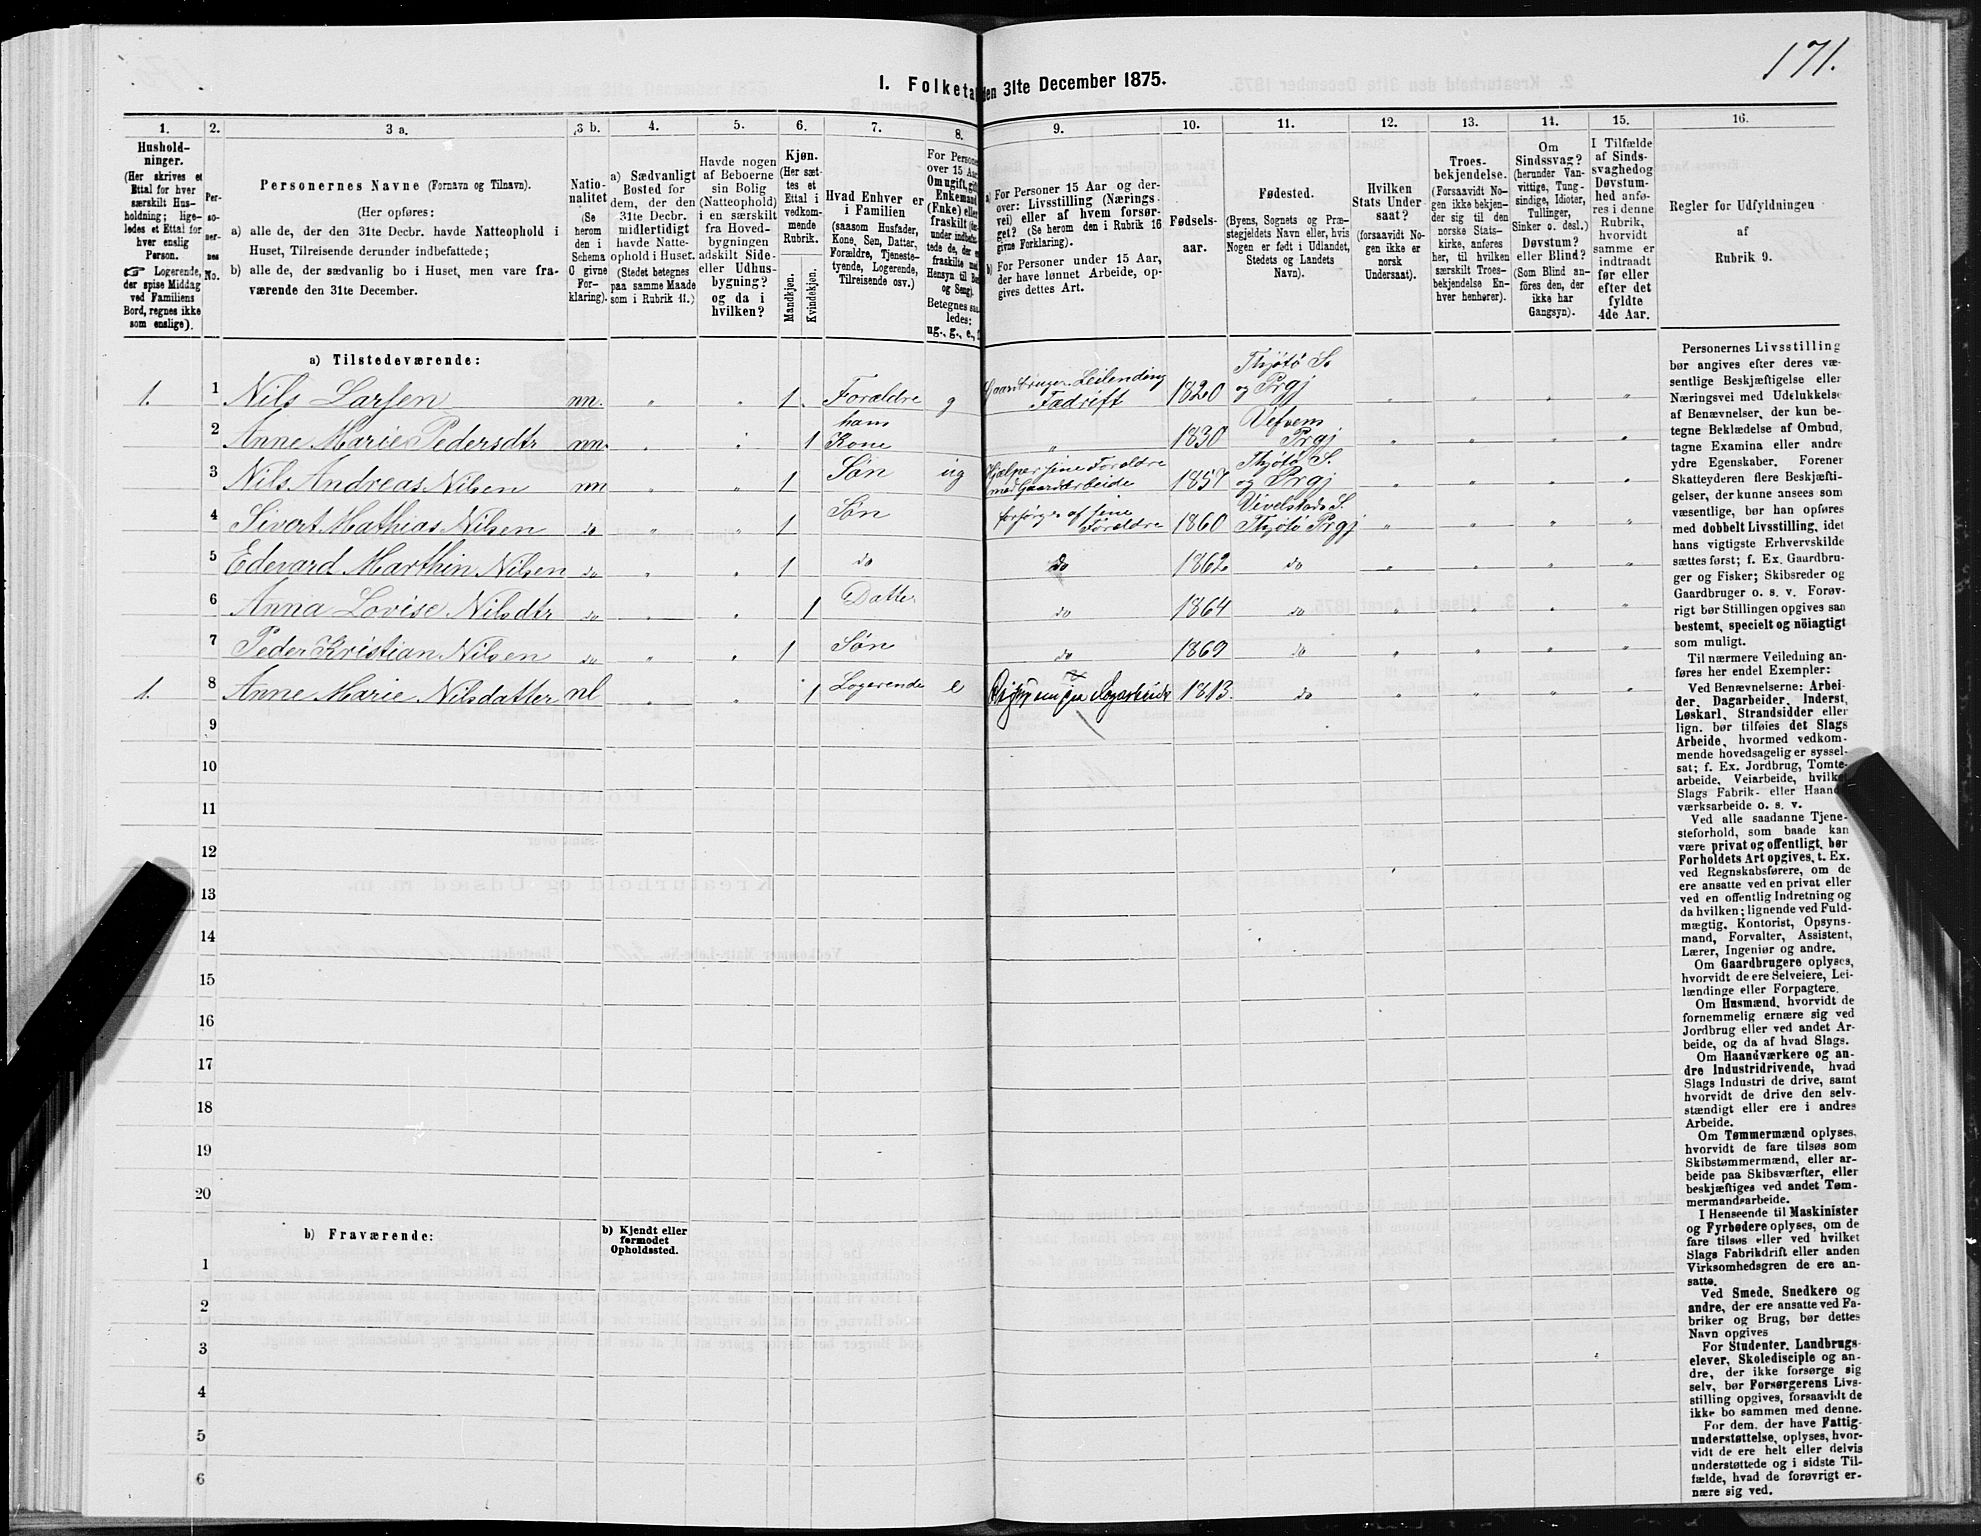 171.
1. Folketal den 31te December 1875.
1. 2. 3 a. 3 b. 4. 5. 6. 7. 8. 9. 10. 11. 12. 13. 14. 15. 16.
Hushold-
ninger.
(Her skrives et
Ettal for hver
særskilt Hus-
holdning; lige-
ledes et Ettal for
hver enslig
Person.
☞ Logerende,
der spise Middag
ved Familiens
Bord, regnes ikke
som enslige).
Per-
so-
ner-
nes
No.
Personernes Navne (Fornavn og Tilnavn).
(Her opføres:
a) alle de, der den 31te Decbr. havde Natteophold i
Huset, Tilreisende derunder indbefattede;
b) alle de, der sædvanlig bo i Huset, men vare fra-
værende den 31te December.
Natio-
nalitet
(Se
herom
den i
Schema
O givne
For-
klaring).
a) Sædvanligt
Bosted for
dem, der den
31te Decbr.
midlertidigt
havde Natte-
ophold i Huset.
(Stedet betegnes
paa samme Maade
som i Rubrik 11.)
Havde nogen
af Beboerne
sin Bolig
(Natteophold)
i en særskilt
fra Hoved-
bygningen
adskilt Side-
eller Udhus-
bygning?
og da i
hvilken?
Kjøn.
(Her sæt-
tes et
Ettal i
vedkom-
mende
Rubrik.
Mandkjøn.
Kvindekjøn.
Hvad Enhver er
i Familien
(saasom Husfader,
Kone, Søn, Datter,
Forældre, Tjeneste-
tyende, Logerende,
Tilreisende osv.)
For Personer
over 15 Aar:
Om ugift, gift,
Enkemand
(Enke) eller
fraskilt
Betegnes saa-
ledes:
ug., g., e.,
a) For Personer 15 Aar og der-
over: Livsstilling (Nærings-
vei) eller af hvem forsør-
get? (Se herom den i Rubrik 16
givne Forklaring).
b) For Personer under 15 Aar,
der have lønnet Arbeide, op-
gives dettes Art.
Fødsels-
aar.
Fødested.
(Byens, Sognets og Præ-
stegjeldets Navn eller, hvis
Nogen er født i Udlandet,
Stedets og Landets
Navn).
Hvilken
Stats Under-
saat?
(forsaavidt No-
gen ikke er
norsk
Undersaat).
Troes-
bekjendelse.
(Forsaavidt No-
gen ikke bekjen-
der sig til den
norske Stats-
kirke, anføres
her, til hvilken
særskilt Troes-
bekjendelse En-
hver henhører).
Om
Sindssvag?
(herunder Van-
vittige, Tung-
sindige, Idioter,
Tullinger,
Sinker o. desl.)
Døvstum?
eller Blind?
(Som Blind an-
føres den, der
ikke har
Gangsyn).
I Tilfælde
af Sinds-
svaghed og
Døvstum-
hed anfø-
res i denne
Rubrik,
hvorvidt
samme er
indtraadt
før eller
efter det
fyldte
4de Aar.
Regler for Udfyldningen
af
Rubrik 9.
a) Tilstedeværende:
1. 1 Nils Larsen nn. " " 1. Forældre g Leilending Fædrift 1820 Thjøtø S. og Prgj " " " "
2 Anne Marie Pedersdtr nn. " " 1 hans Kone " 1830 Vefsen Prgj " " " "
3 Nils Andreas Nilsen nn " " 1 Søn ug Hjælper sine Forældre med Gaardarbeide 1857 Thjøtø S. og Prgj " " " "
4 Sivert Mathias Nilsen do " " 1 Søn forsørges af sine Forældre 1860 Vivelstads S. Thjøtø Prgj " " " "
5 Edevard Marthin Nilsen do " " 1 do do 1862 do " " " "
6 Anna Lovise Nilsdtr do " " 1 Datter do 1864 do " " " "
7 Peder Kristian Nilsen do " " 1 Søn do 1869 do " " " "
1. 8 Anne Marie Nilsdatter nl " " 1 Logerende e 1813. do " " " "
9
10
11
12
13
14
15
16
17
18
19
20
b) Fraværende:
b) Kjendt eller
formodet
Opholdssted.
1
2
3
4
5
6
Personernes Livsstilling
bør angives efter deres væ-
sentlige Beskjæftigelse eller
Næringsvei med Udelukkelse
af Benævnelser, der kun be-
tegne Beklædelse af Ombud,
tagne Examina eller andre
ydre Egenskaber. Forener
Skatteyderen flere Beskjæfti-
gelser, der kunne ansees som
væsentlige, bør han opføres
med dobbelt Livsstilling, idet
hans vigtigste Erhvervskilde
sættes først; f. Ex. Gaardbru-
ger og Fisker; Skibsreder og
Gaardbruger o. s. v. Forøv-
rigt bør Stillingen opgives saa
bestemt, specielt og nöiagtigt
som muligt.
Til nærmere Veiledning an-
føres her endel Exempler:
Ved Benævnelserne: Arbei-
der, Dagarbeider, Inderst,
Løskarl, Strandsidder eller
lign. bør tilføies det Slags
Arbeide, hvormed vedkom-
mende hovedsagelig er syssel-
sat; f. Ex. Jordbrug, Tomte-
arbeide, Veiarbeide, hvilket
Slags Fabrik- eller Haand-
værksarbeide o. s. v.
Ved alle saadanne Tjene-
steforhold, som baade kan
være privat og offentligt, bør
Forholdets Art opgives, t. Ex.
ved Regnskabsførere, om de
ere ansatte ved en privat eller
ved en offentlig Indretning og
da hvilken; lignende ved Fuld-
mægtig, Kontorist, Opsyns-
mand, Forvalter, Assistent,
Lærer, Ingeniør og andre.
Om Gaardbrugere oplyses,
hvorvidt de ere Selveiere, Lei-
lændinge eller Forpagtere.
Om Husmænd, hvorvidt de
fornemmelig ernære sig ved
Jordbrug eller ved andet Ar-
beide, og da af hvad Slags.
Om Haandværkere og an-
dre Industridrivende, hvad
Slags Industri de drive, samt
hvorvidt de drive den selv-
stændigt eller ere i andres
Arbeide.
Om Tømmermænd oplyses,
hvorvidt de fare tilsøs som
Skibstømmermænd, eller ar-
beide paa Skibsværfter, eller
beskjæftiges ved andet Tøm-
mermandsarbeide.
I Henseende til Maskinister
og Fyrbødere oplyses, om de
fare tilsøs eller ved hvilket
Slags Fabrikdrift eller anden
Virksomhedsgren de ere an-
satte.
Ved Smede, Snedkere og
andre, der ere ansatte ved Fa-
briker og Brug, bør dettes
Navn opgives
For Studenter, Landbrugs-
elever, Skoledisciple og an-
dre, der ikke forsørge sig
selv, bør Forsørgerens Livs-
stilling opgives, forsaavidt de
ikke bo sammen med denne.
For dem, der have Fattig-
understøttelse, oplyses, hvor-
vidt de ere helt eller delvis
understøttede og i sidste Til-
fælde, hvad de forøvrigt er-
nære sig ved.